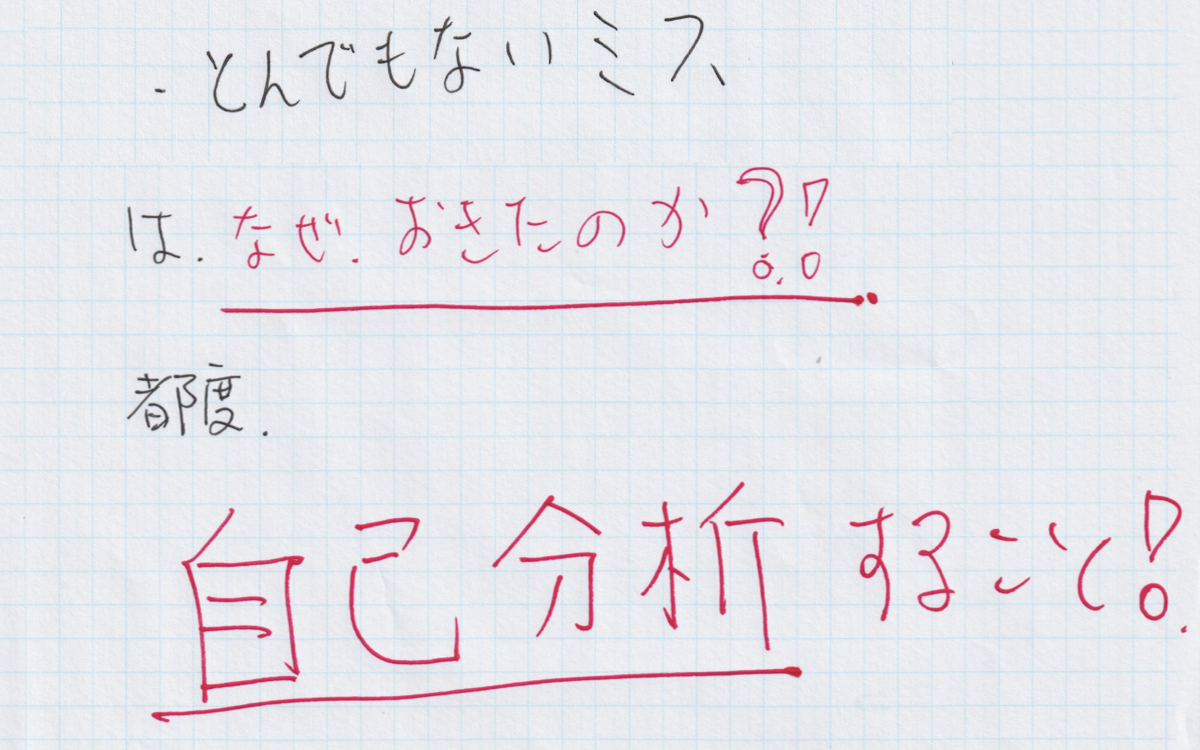 ・とんでもないミス
は.なぜ.おきたのか?!
都度.
自己分析すること!